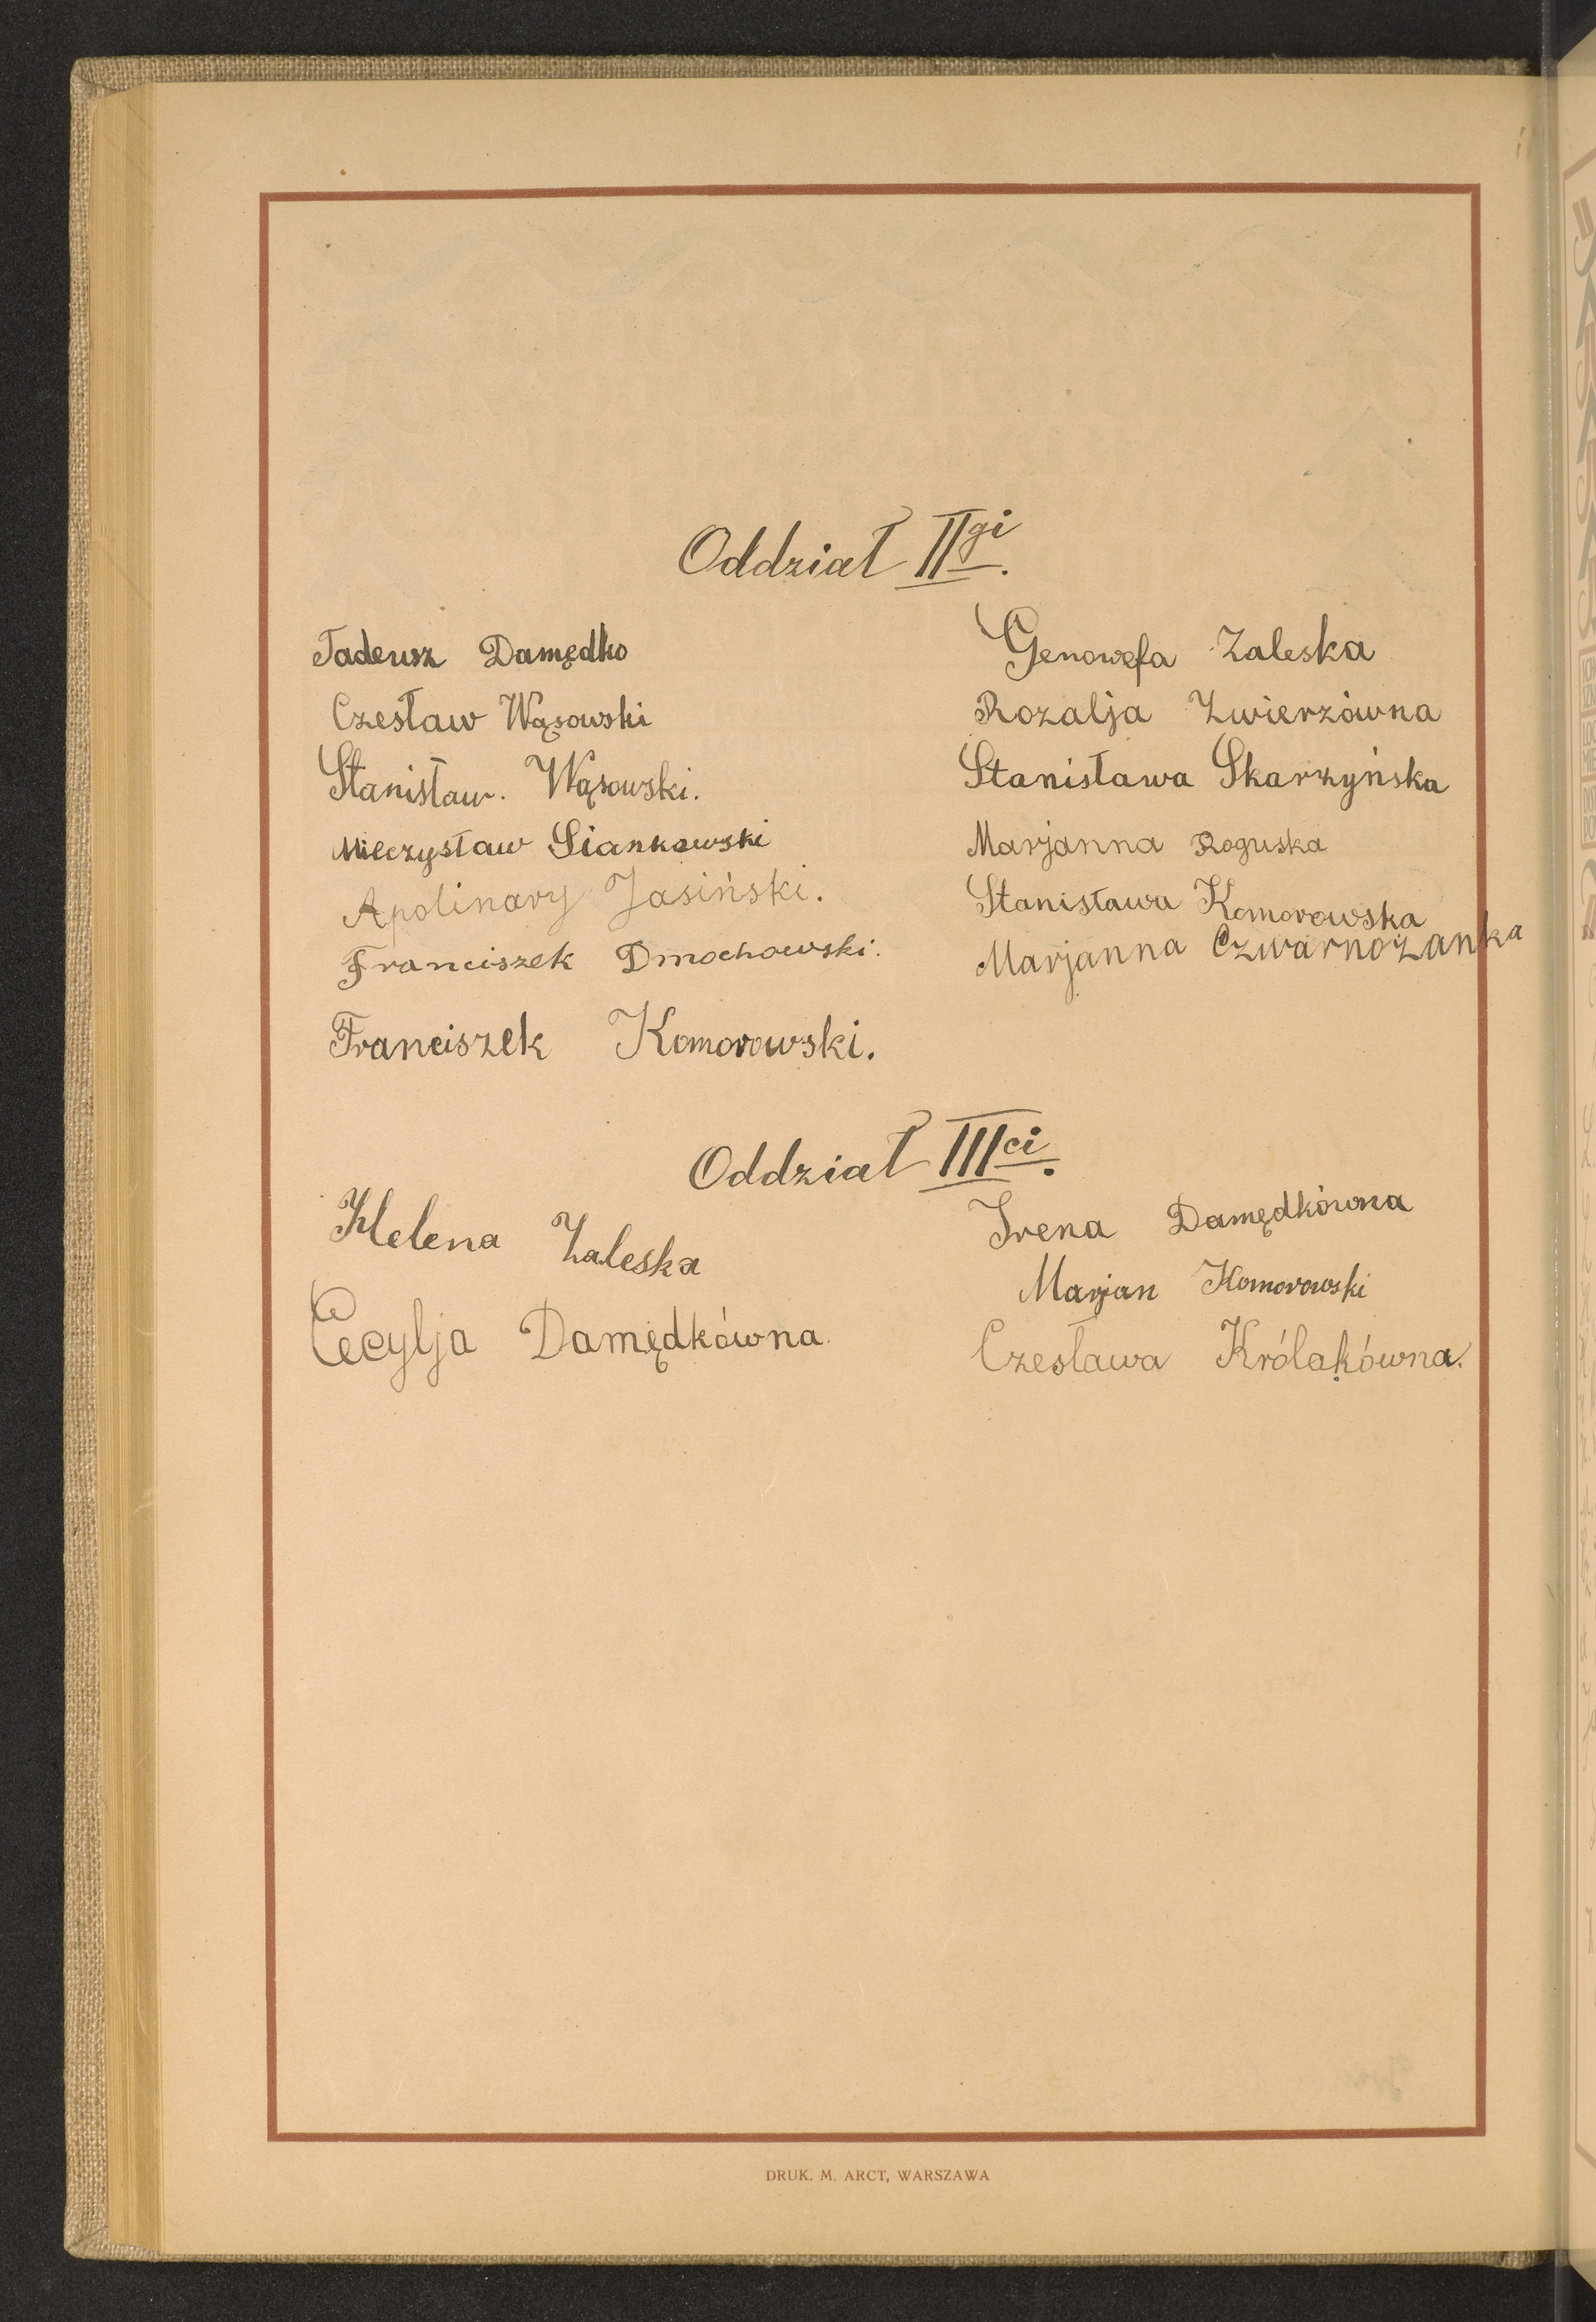 Oddział IIgi.
Tadeusz Damędko
Czesław Wąsowski
Stanisław. Wąsowski.
Mieczysław Siankowski
Apolinary Jasiński.
Franciszek Dmochowski.
Franciszek Komorowski.
Genowefa Zaleska
Rozalja Zwierzówna
Stanisława Skarzyńska
Marjanna Roguska
Stanisława Komorowska
Marjanna Czwarnożanka
Oddział IIIci.
Helena Zaleska
Cecylja Damędkówna.
Irena Damędkówna
Marjan Komorowski
Czesława Królakówna.
DRUK. M. ARCT, WARSZAWA